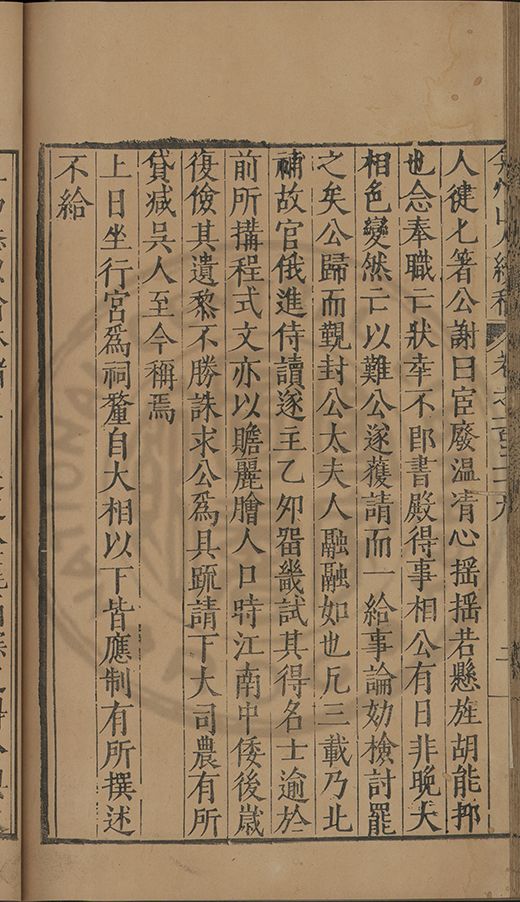 弇州山人續稿 卷之一百二十九 二
人徤匕箸公謝曰宦廢溫凊心搖搖若懸旌胡能抑
也念奉職亡狀幸不卽書殿得事相公有日非晚大
相色變然亡以難公遂獲請而一給事論劾檢討罷
之矣公歸而覲封公太夫人融融如也凡三載乃北
補故官俄進侍讀遂主乙夘畱畿試其得名士逾於
前所搆程式文亦以贍麗膾人口時江南中倭後歲
復儉其遺黎不勝誅求公爲具疏請下大司農有所
貸減吳人至今稱焉
上日坐行宮爲祠釐自大相以下皆應制有所撰述
不給